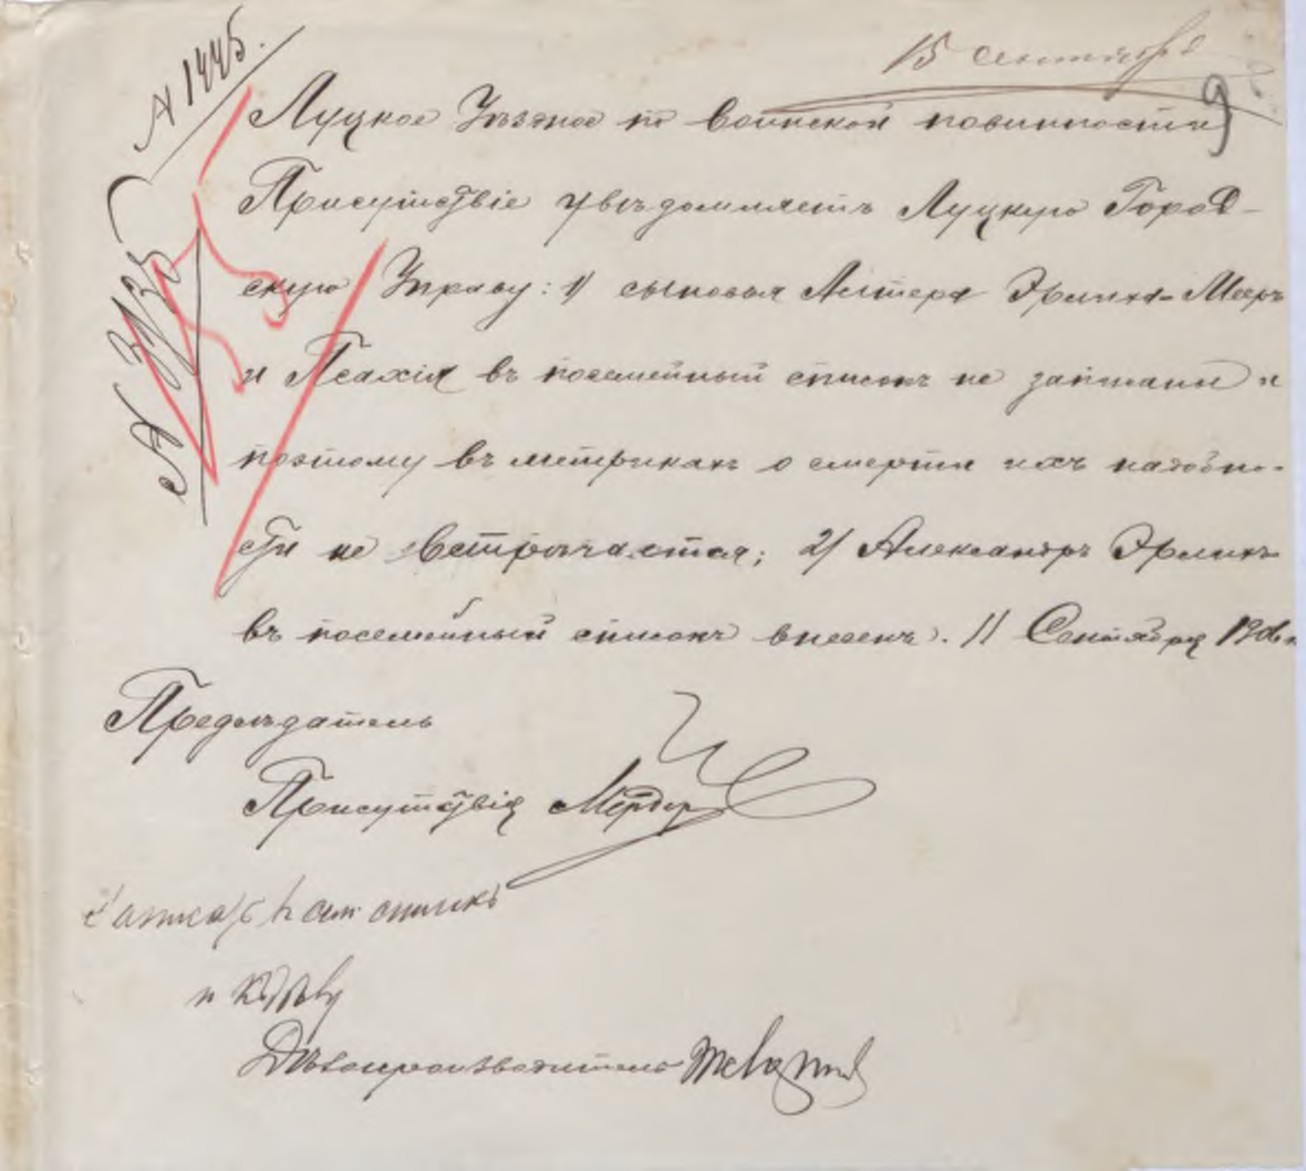 15 сентября
№ 1445.
9
Луцкое Уѣздное по воинской повинности
Присутствіе увѣдомляетъ Луцкую Город-
скую Управу: 1/ сыновья Лейзера Эрлиха-Мееръ
и Псахія въ посемейный списокъ не записаны и
поэтому въ метрикахъ о смерти ихъ надобно-
сти не встрѣчается; 2/ Александръ Эрлихъ
въ посемейный списокъ внесенъ. 11 Сентября 190
Предсѣдатель
Присутствія
списокъ
и къ дѣлу
Дѣлопроизводитель